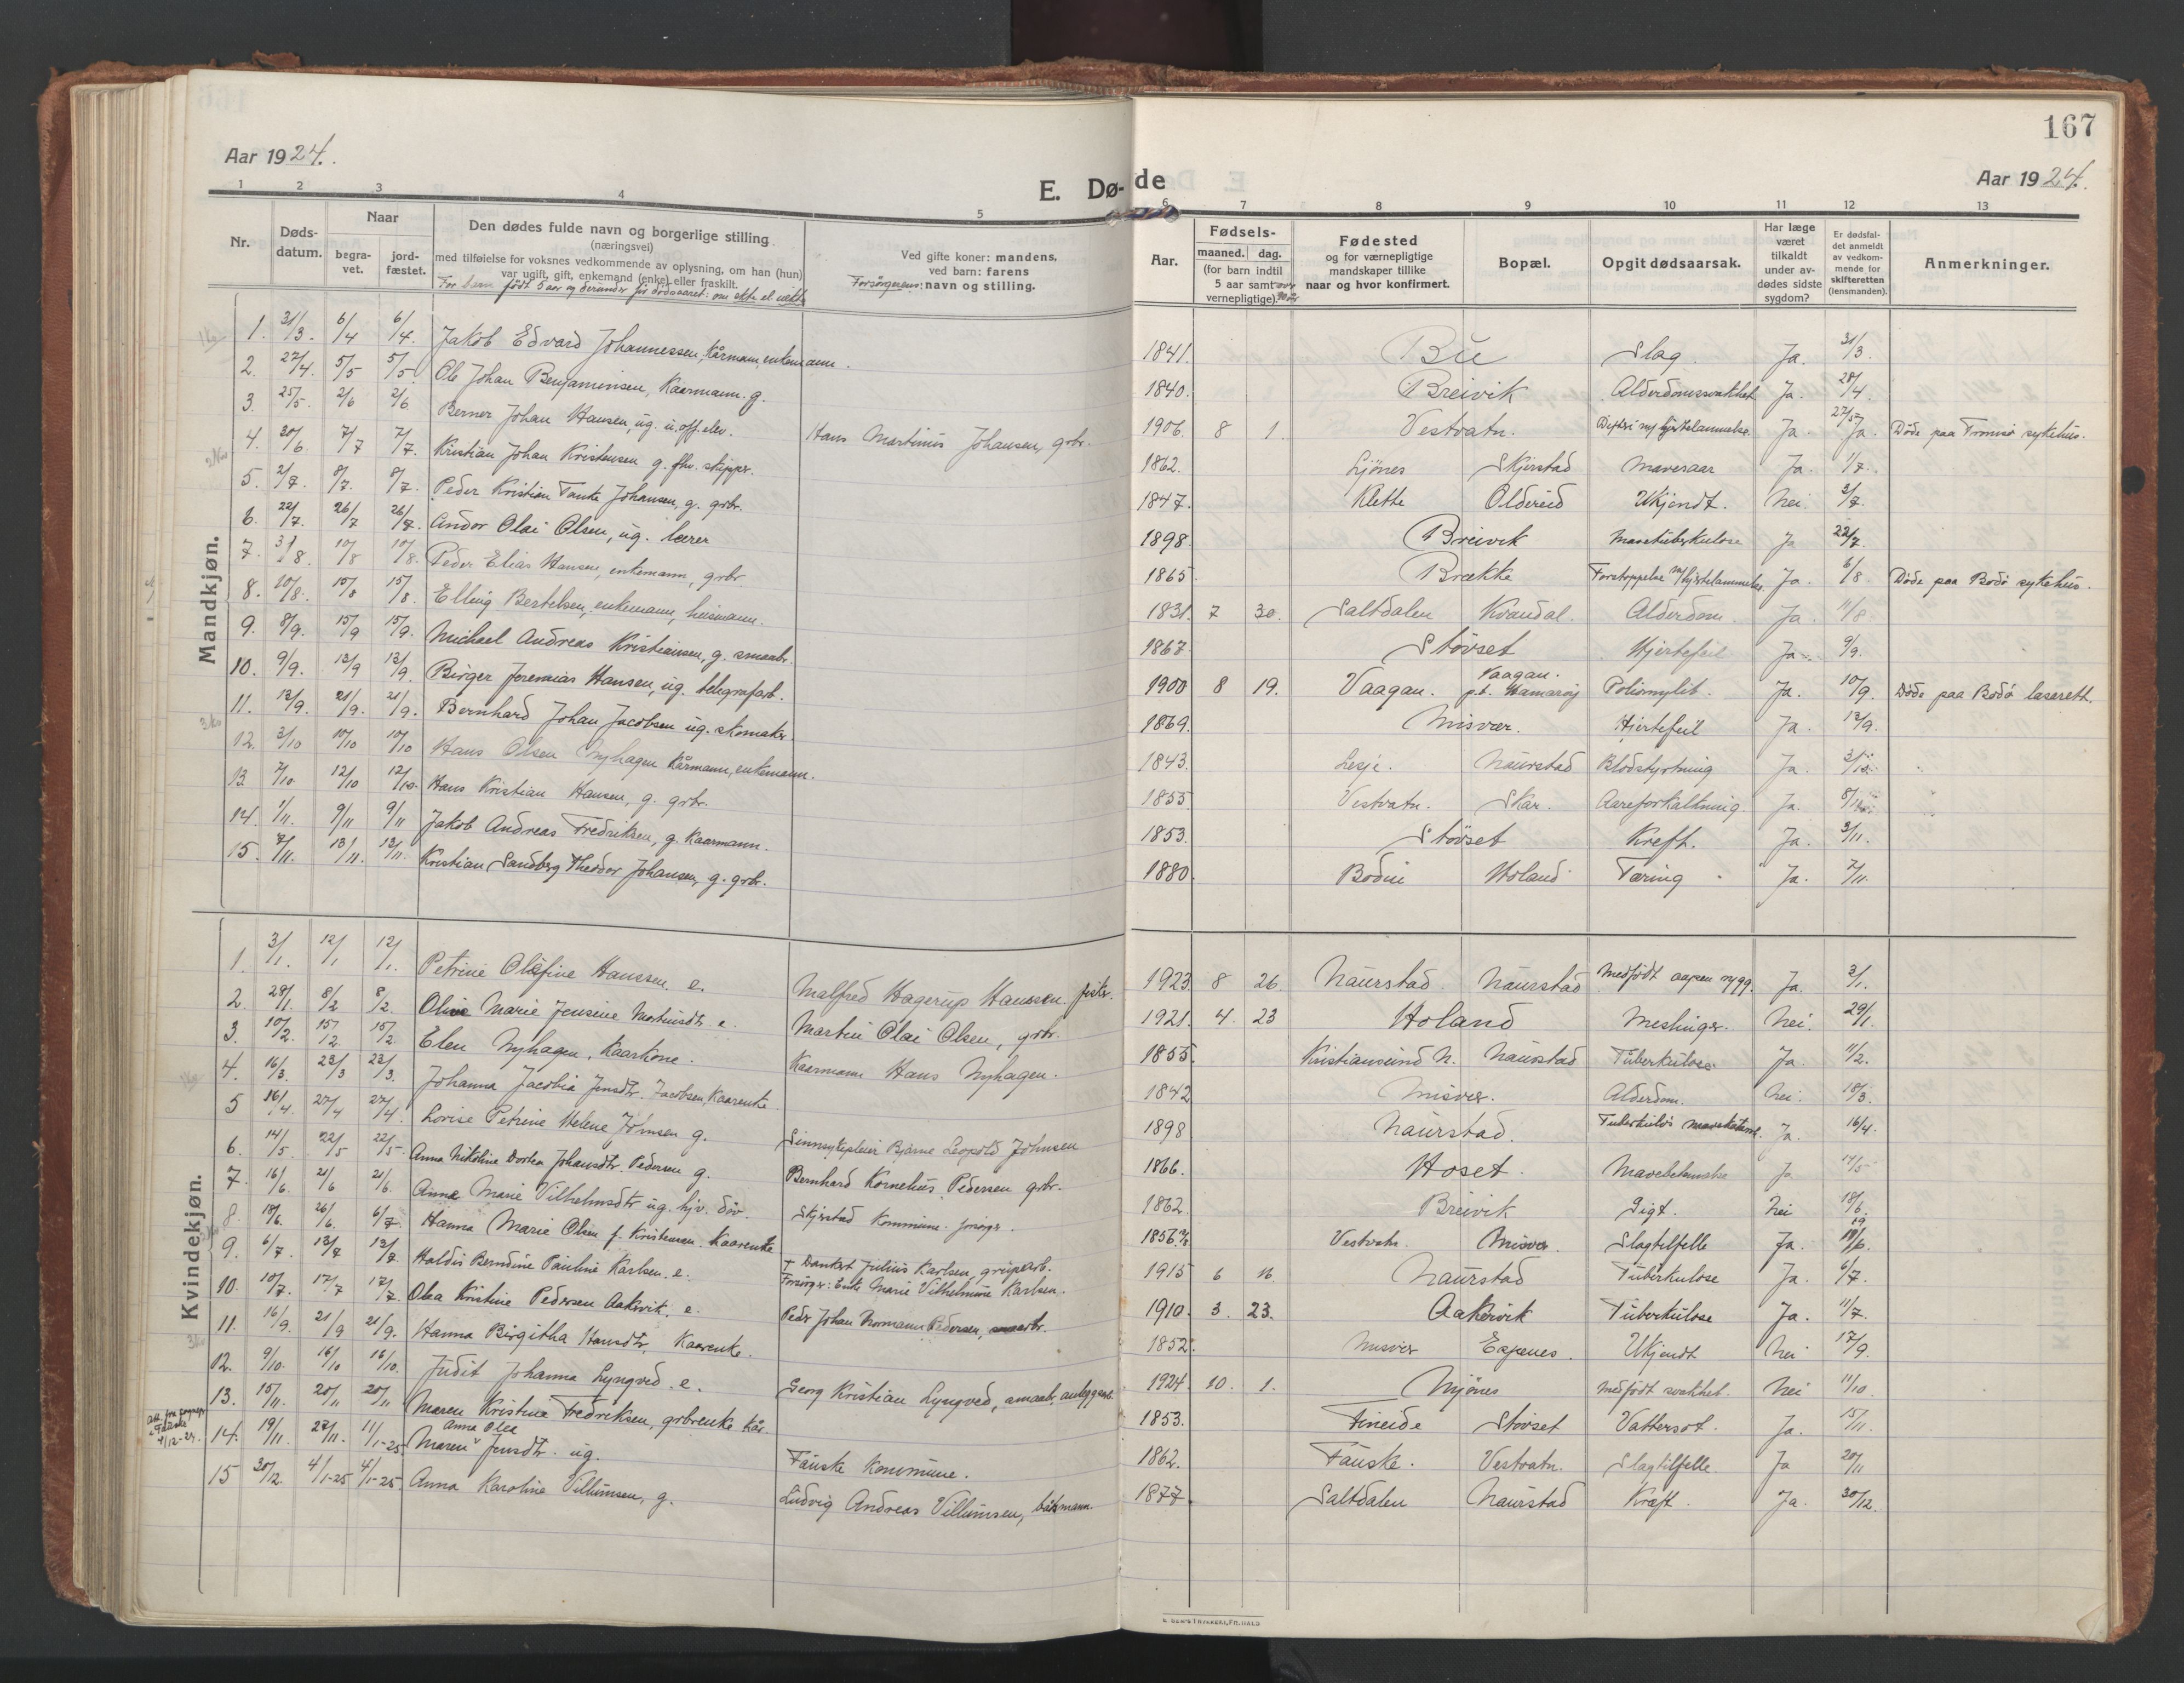 167
Aar 1924.
Aar 1924.
E. Dø-de
1 2 3 4 5 6 7 8 9 10 11 12 13
Nr. Døds-datum. Naar begra-vet. jord-fæstet. Den dødes fulde navn og borgerlige stilling (næringsvei) med tilføielse for voksnes vedkommende av oplysning, om han (hun) var ugift, gift, enkemand (enke) eller fraskilt. For barn født 5 aar og derunder før dødsaaret: om ekte el. uekte Ved gifte koner: mandens, ved barn: farens Forsørgerens: navn og stilling. Aar. Fødsels- maaned. dag. (for barn indtil 5 aar samt vernepligtige). Fødested og for værnepligtige mandskaper tillike naar og hvor konfirmert. Bopæl. Opgit dødsaarsak. Har læge været tilkaldt under av-dødes sidste sygdom? Er dødsfal-det anmeldt av vedkom-mende for skifteretten (lensmanden). Anmerkninger.
Mandkjøn.
1. 31/3. 6/4 6/4. Jakob Edvard Johannessen, Kårmann, enkemann. 1841. Bu Slag. Ja. 31/3.
2. 27/4. 5/5 5/5. Ole Johan Benjaminsen, Kaarmann. g. 1840. Breivik Alderdomssvakhet Ja. 28/4.
3. 25/5. 2/6 2/6 Berner Johan Hansen, ug. u.off.elev. Hans Martinus Johansen, grbr. 1906. 8 1. Vestvatn. Difteri m/ hjertelammelse Ja. 27/5 Ja. Døde paa Tromsø sykehus.
4. 30/6. 7/7 7/7. Kristian Johan Kristensen g. fhv. skipper. 1862. Ljönes Skjerstad Mavesaar Ja. 1/7.
5. 2/7. 8/7. 8/7. Peder Kristian Tanke Johansen, g. grbr. 1847. Klette Oldereid Ukjendt. Nei. 3/7.
6. 22/7. 26/7 26/7. Andor Olai Olsen, ug. lærer 1898. Breivik Mavetuberkulose Ja 22/7.
7. 3/8. 10/8 10/8. Peder Elias Hansen, enkemann, grbr 1865. Brække Forstoppelse m/hjertelammelse. Ja. 6/8 Døde paa Bodø sykehus.
8. 10/8. 15/8 15/8. Elling Bertelsen, enkemann, husmann. 1831. 7 30. Saltdalen Kvandal. Alderdom. Ja. 11/8
9. 8/9. 15/9 15/9. Michael Andreas Kristiansen, g. smaabr. 1867. Støvset Hjertefeil Ja. 9/9.
10. 9/9. 13/9 13/9. Birger Jeremias Hansen, ug. telegrafarb. 1900 8 19. Vaagan. Vaagan. p.t. Hamarøy Poliomylit. Ja. 10/9. Døde paa Bodø lasarett.
11. 13/9. 21/9. 21/9. Bernhard Johan Jacobsen ug. skomaker. 1869. Misvær. Hjertefeil Ja. 13/9.
12. 3/10 10/10 10/10 Hans Olsen Nyhagen Kårmann, enkemann. 1843. Lesje. Naurstad Blodstyrtning Ja. 3/10.
13 7/10. 12/10 12/10. Hans Kristian Hansen, g. grbr. 1855. Vestvatn. Skar. Aareforkalkning. Ja.
14. 1/11. 9/11 9/11 Jakob Andreas Fredriksen, g. Kaarmann. 1853. Støvset Kreft. Ja. 3/11.
15. 7/11. 13/11. 13/11. Kristian Sandberg Theodor Johansen, g. grbr. 1880. Bodin Holand Tæring Ja. 7/11.
Kvindekjøn.
1. 3/1. 12/1 12/1. Petrine Olefine Hanssen e. Malfred Hagerup Hanssen. fisker. 1923 8 26. Naurstad Naurstad Medfödt aapen rygg. Ja. 3/1.
2. 28/1. 8/2 8/2. Oline Marie Jensine Martinsdtr e. Martin Olai Olsen, grbr. 1921. 4. 23 Holand Meslinger. Nei. 29/1.
3. 10/2. 15/2 15/2 Elen Nyhagen, Kaarkone. Kaarmann Hans Nyhagen. 1855. Kristiansund N. Naurstad Tuberkulose. Ja. 11/2.
4. 16/3. 23/3 23/3. Johanna Jacobia Jensdtr. Jacobsen, Kaarenke. 1842 Misvær. Alderdom. Nei. 18/3.
5 16/4. 27/4 27/4. Lovise Petrine Helene Johnsen g. Sinnsykepleier Bjarne Leopold Johnsen 1898 Naurstad. Tuberkuløs mavekatarr. Ja. 16/4.
6. 14/5. 22/5 22/5. Anna Nikoline Dortea Johansdtr. Pedersen g. Bernhard Kornelius Pedersen grbr. 1866. Hoset. Ja 14/5
7. 16/6. 21/6 21/6. Anna Marie Vilhelmsdtr ug. hjv. døv. Skjerstad Kommune. forsørger. 1862. Breivik Gigt. Nei 18/6.
8. 18/6. 26/6. 6/7. Hanna Marie Olsen f. Kristensen. Kaarenke 1856. Vestvatn. Misvær. Slagtilfelle Ja. 19/6.
9. 6/7. 13/7 13/7. Haldis Berndine Pauline Karlsen. e. + Dankert Julius Karlsen, grubearb. Forsørger: Enke Marie Vilhelmine Karlsen. 1915 6 16. Naurstad Tuberkulose Ja. 6/7.
10. 10/7. 17/7 17/7. Olea Kristine Pedersen Aakervik. e. Peder Johan Normann Pedersen, smaabr. 1910. 3. 23. Aakervik Tuberkulose Ja. 11/7.
11. 16/9. 21/9 21/9. Hanna Birgitha Hansdtr. Kaarenke. 1852. Misvær Expnes. Ukjendt Nei 17/9.
12. 9/10. 16/10 16/10. Judit Johanna Lyngved. e. Georg Kristian Lyngved, smaabr, anleggsarb. 1924. 10. 1. Mjönes Medfödt svakhet. Nei 11/10
13. 15/11. 20/11 20/11 Maren Kristine Fredriksen, grbrenke Kår. 1853. Fineide Støvset Vattersot. Ja. 15/11.
Att. fra sognepr. i Fauske 4/12-24.
14. 19/11. 27/11. 11/1-25 Maren Anna Olea Jensdtr. ug. Fauske Kommune. 1862. Fauske. Vestvatn. Slagtilfelle. Ja 20/11
15 30/12. 4/1-25 4/1-25 Anna Karoline Villumsen, g. Ludvig Andreas Villumsen, baadsmann. 1877. Saltdalen Naurstad Kræft. Ja. 30/12.